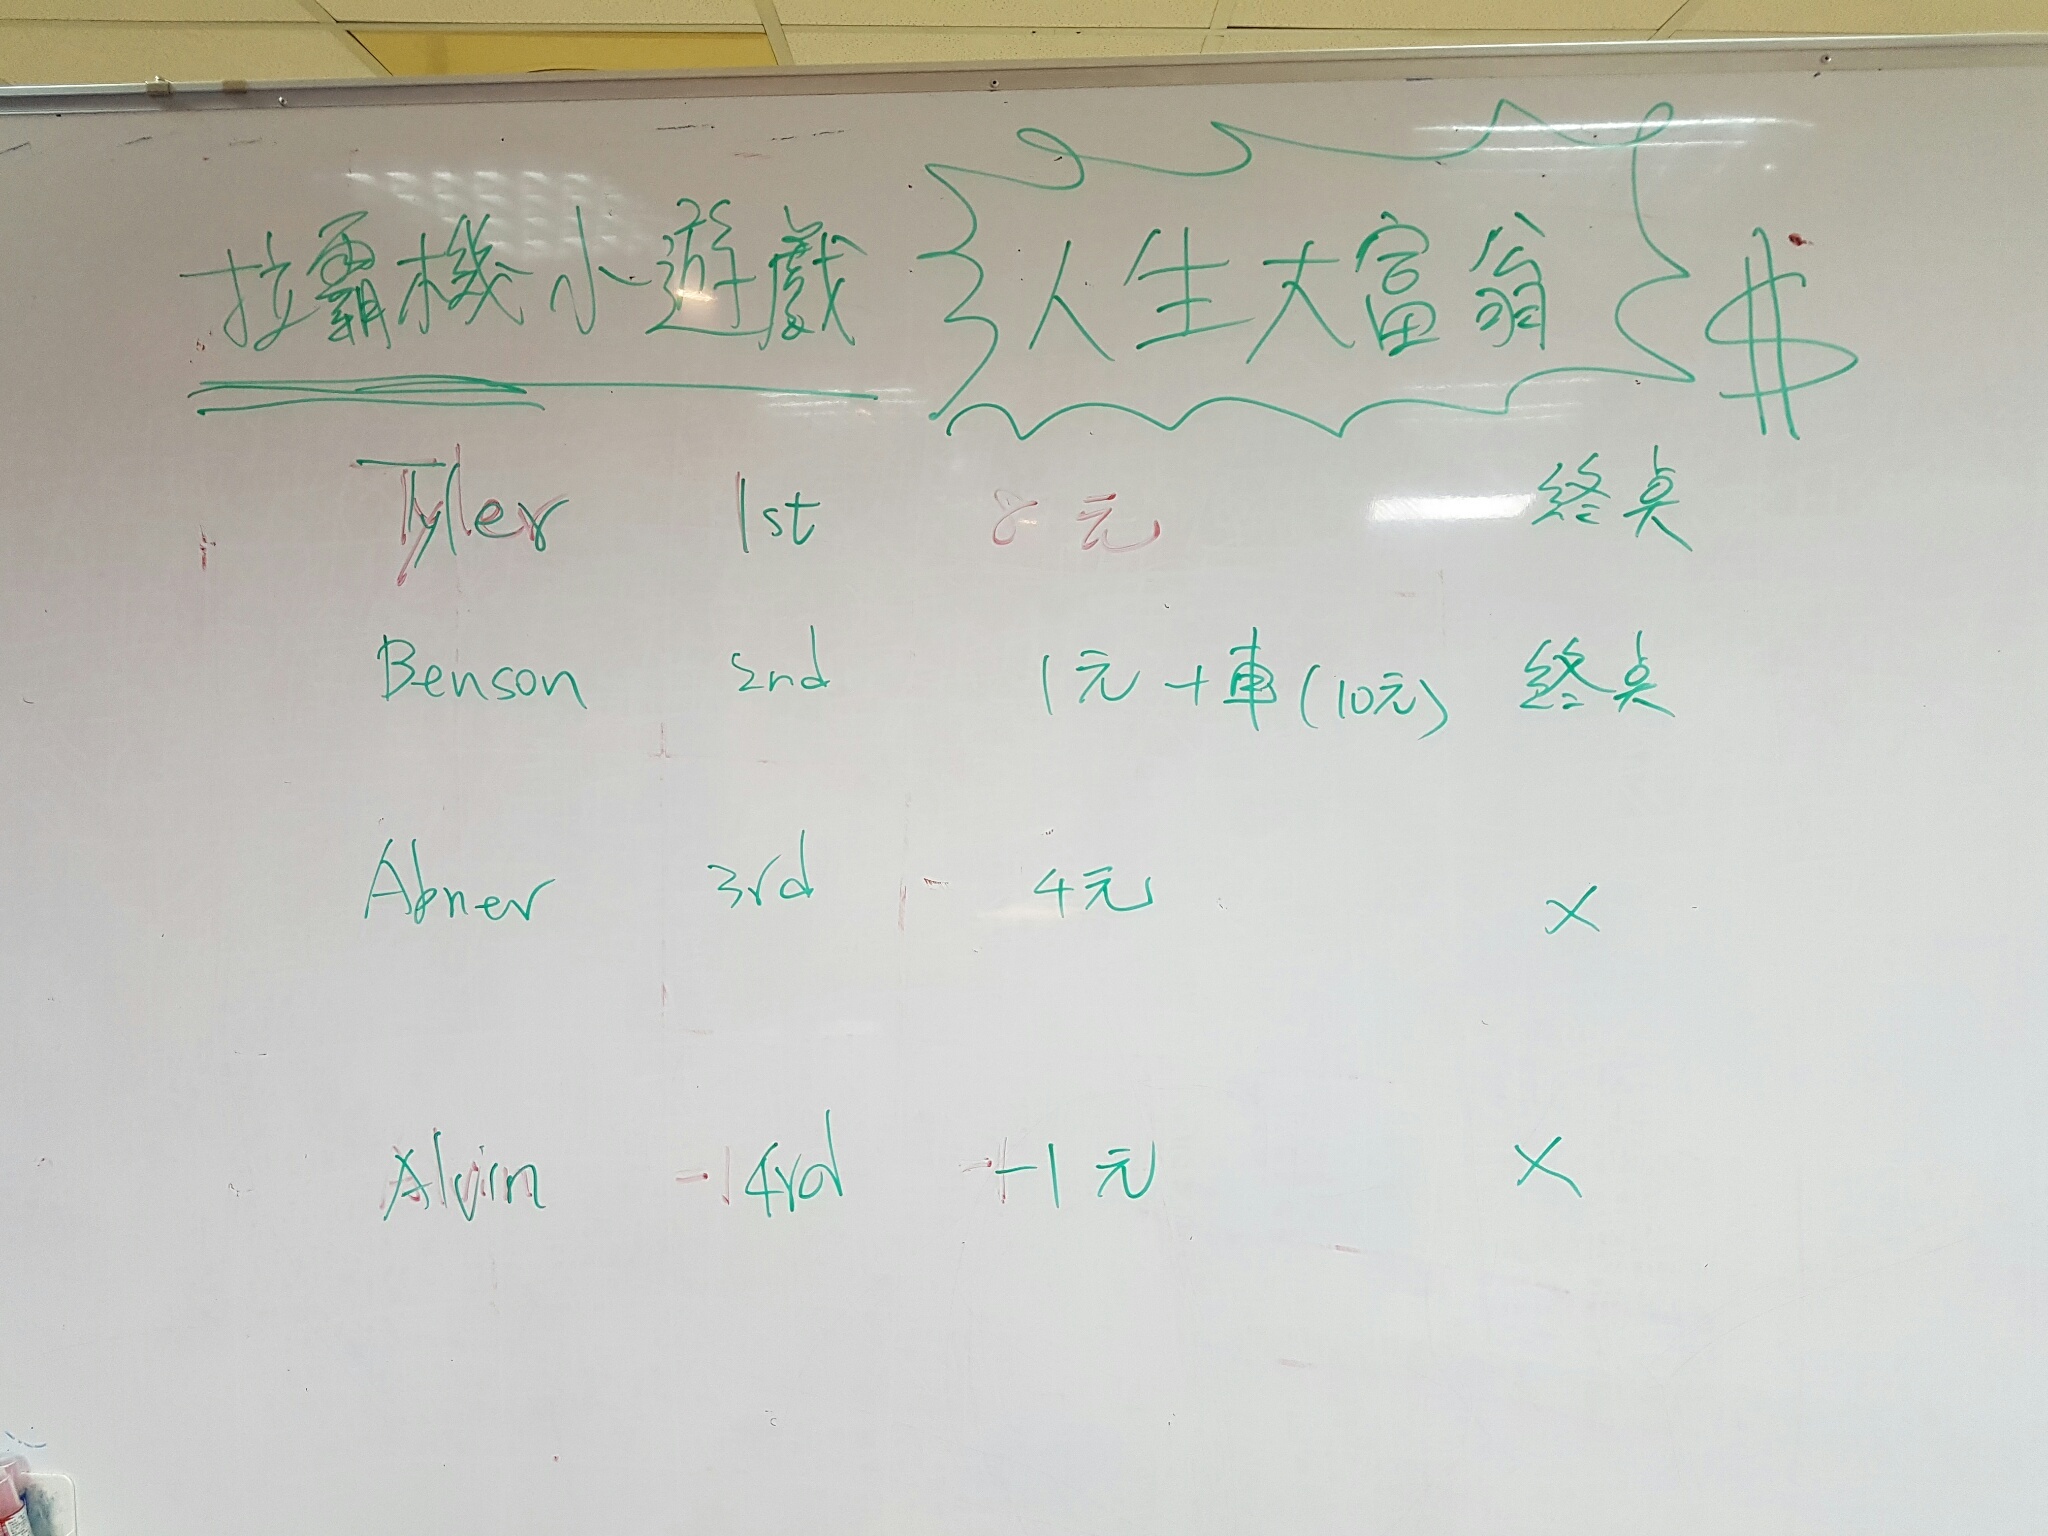 拉霸機小遊戲 人生大富翁 $
Tyler 1st 8元 終点
Benson 2nd 1元+車(10元) 終点
Abner 3rd 4元 X
Alvin 4rd +1元 X